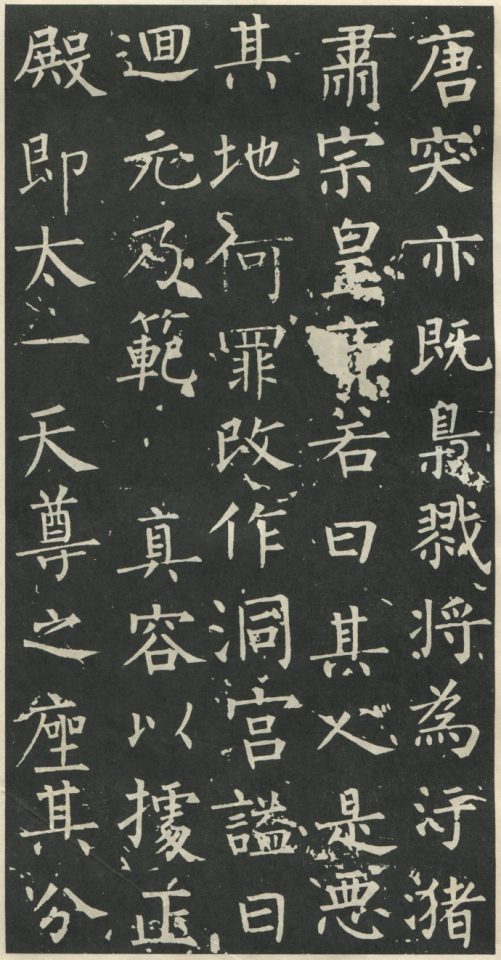 唐突亦既梟戮將為汙潴
肅宗皇帝若曰其人是悪
其地何罪改作洞宫謚曰
迴元乃範 真容以據正
殿即太一天尊之座其分